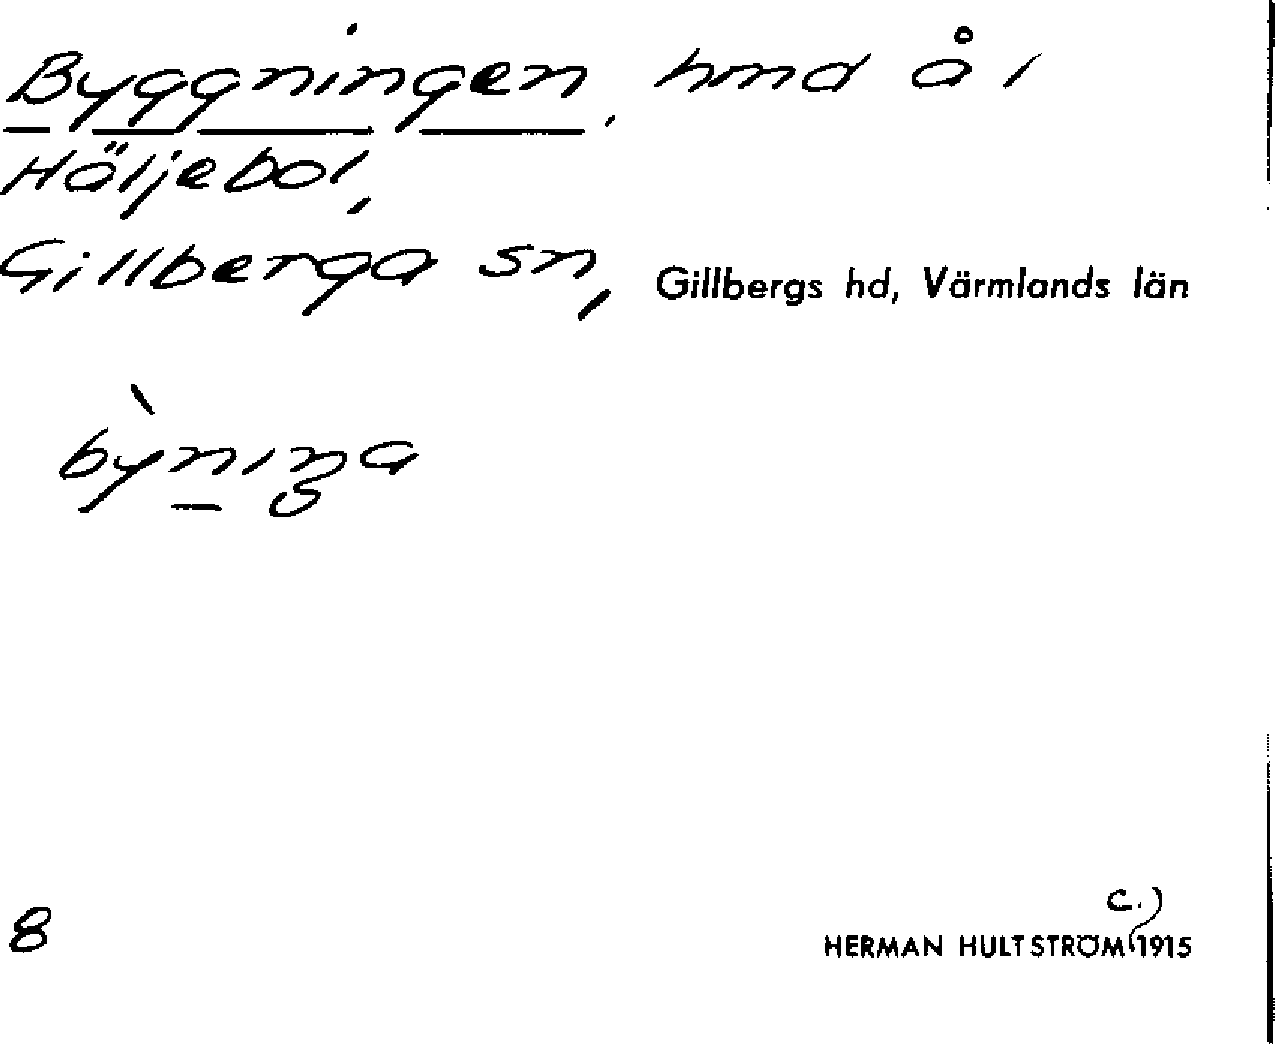 Byggningen, hmd å 1
Höljebol,
Gillberga sn, Gillbergs hd, Värmlands län
bỳninga
8
HERMAN HULTSTRÖM c.) 1915